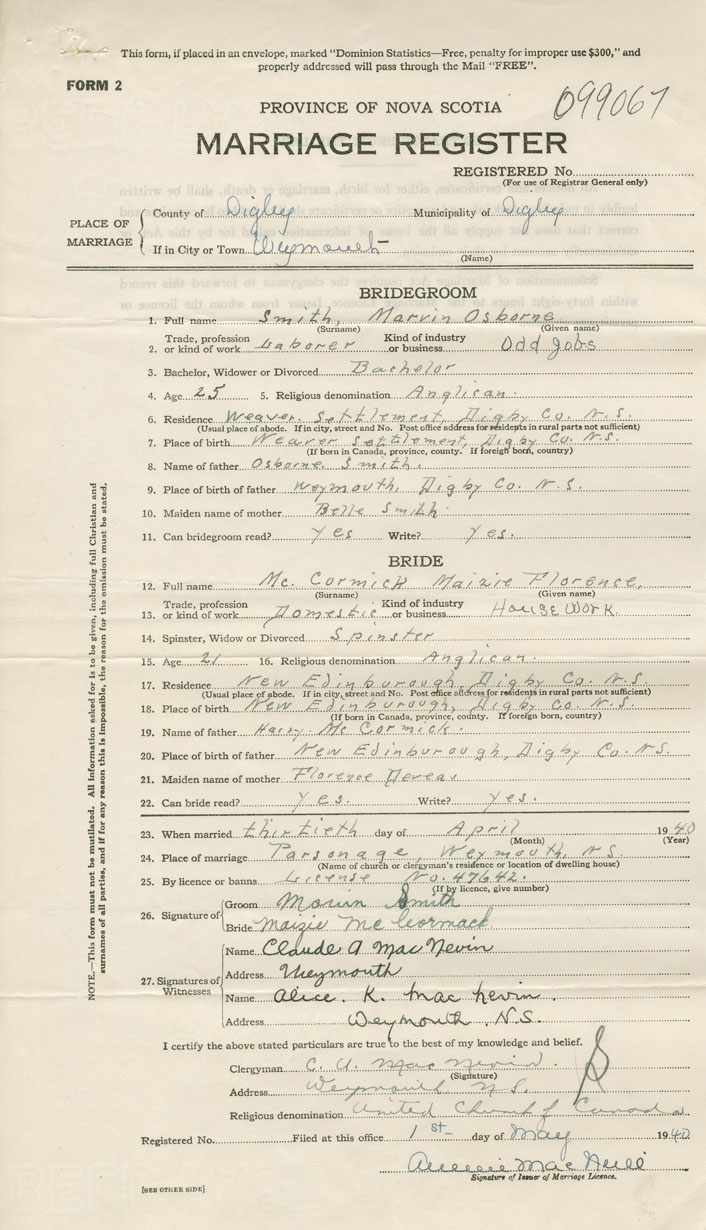 This form, if placed in an envelope, marked "Dominion Statistics—Free, penalty for improper use $300," and
properly addressed will pass through the Mail "FREE".
FORM 2
PROVINCE OF NOVA SCOTIA
099067
MARRIAGE REGISTER
REGISTERED No.
(For use of Registrar General only)
PLACE OF MARRIAGE
County of Digby Municipality of Digby
If in City or Town Weymouth
(Name)
BRIDEGROOM
1. Full name Smith, Marvin Osborne
(Surname) (Given name)
2. Trade, profession or kind of work Laborer Kind of industry or business Odd Jobs
3. Bachelor, Widower or Divorced Bachelor
4. Age 25 5. Religious denomination Anglican.
6. Residence Weaver. Settlement, Digby Co. N.S.
(Usual place of abode. If in city, street and No. Post office address for residents in rural parts not sufficient)
7. Place of birth Weaver Settlement, Digby Co. N.S.
(If born in Canada, province, county. If foreign born, country)
8. Name of father Osborne Smith.
9. Place of birth of father Weymouth, Digby Co. N.S.
10. Maiden name of mother Belle Smith.
11. Can bridegroom read? Yes Write? Yes.
BRIDE
12. Full name Mc. Cormick Maizie Florence,
(Surname) (Given name)
13. Trade, profession or kind of work Domestic Kind of industry or business House Work
14. Spinster, Widow or Divorced Spinster
15. Age 21 16. Religious denomination Anglican.
17. Residence New Edinburough, Digby Co. N.S.
(Usual place of abode. If in city, street and No. Post office address for residents in rural parts not sufficient)
18. Place of birth New Edinburough, Digby Co. N.S.
(If born in Canada, province, county. If foreign born, country)
19. Name of father Harry. Mc Cormick.
20. Place of birth of father New Edinburough, Digby Co. N.S.
21. Maiden name of mother Florence
22. Can bride read? Yes. Write? Yes.
23. When married thirtieth day of April 1940
(Month) (Year)
24. Place of marriage Parsonage, Weymouth, N.S.
(Name of church or clergyman's residence or location of dwelling house)
25. By licence or banns License No. 47642.
(If by licence, give number)
26. Signature of
Groom Smith
Bride Maizie McCormack
27. Signatures of Witnesses
Name Claude A MacNevin
Address Weymouth
Name Alice. K. MacNevin.
Address Weymouth N.S.
I certify the above stated particulars are true to the best of my knowledge and belief.
Clergyman C. A. MacNevin.
(Signature)
Address Weymouth N.S.
Religious denomination United Church of Canada
Registered No. Filed at this office 1st day of May 1940
Mac Neill
Signature of Issuer of Marriage Licence.
[SEE OTHER SIDE]
NOTE.—This form must not be mutilated. All information asked for is to be given, including full Christian and
surnames of all parties, and if for any reason this is impossible, the reason for the omission must be stated.